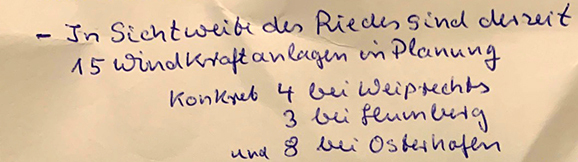 - In Sichtweite des Riedes sind derzeit
15 Windkraftanlagen in Planung
Konkret 4 bei Weiprechts
3 bei
und 8 bei Osterhofen